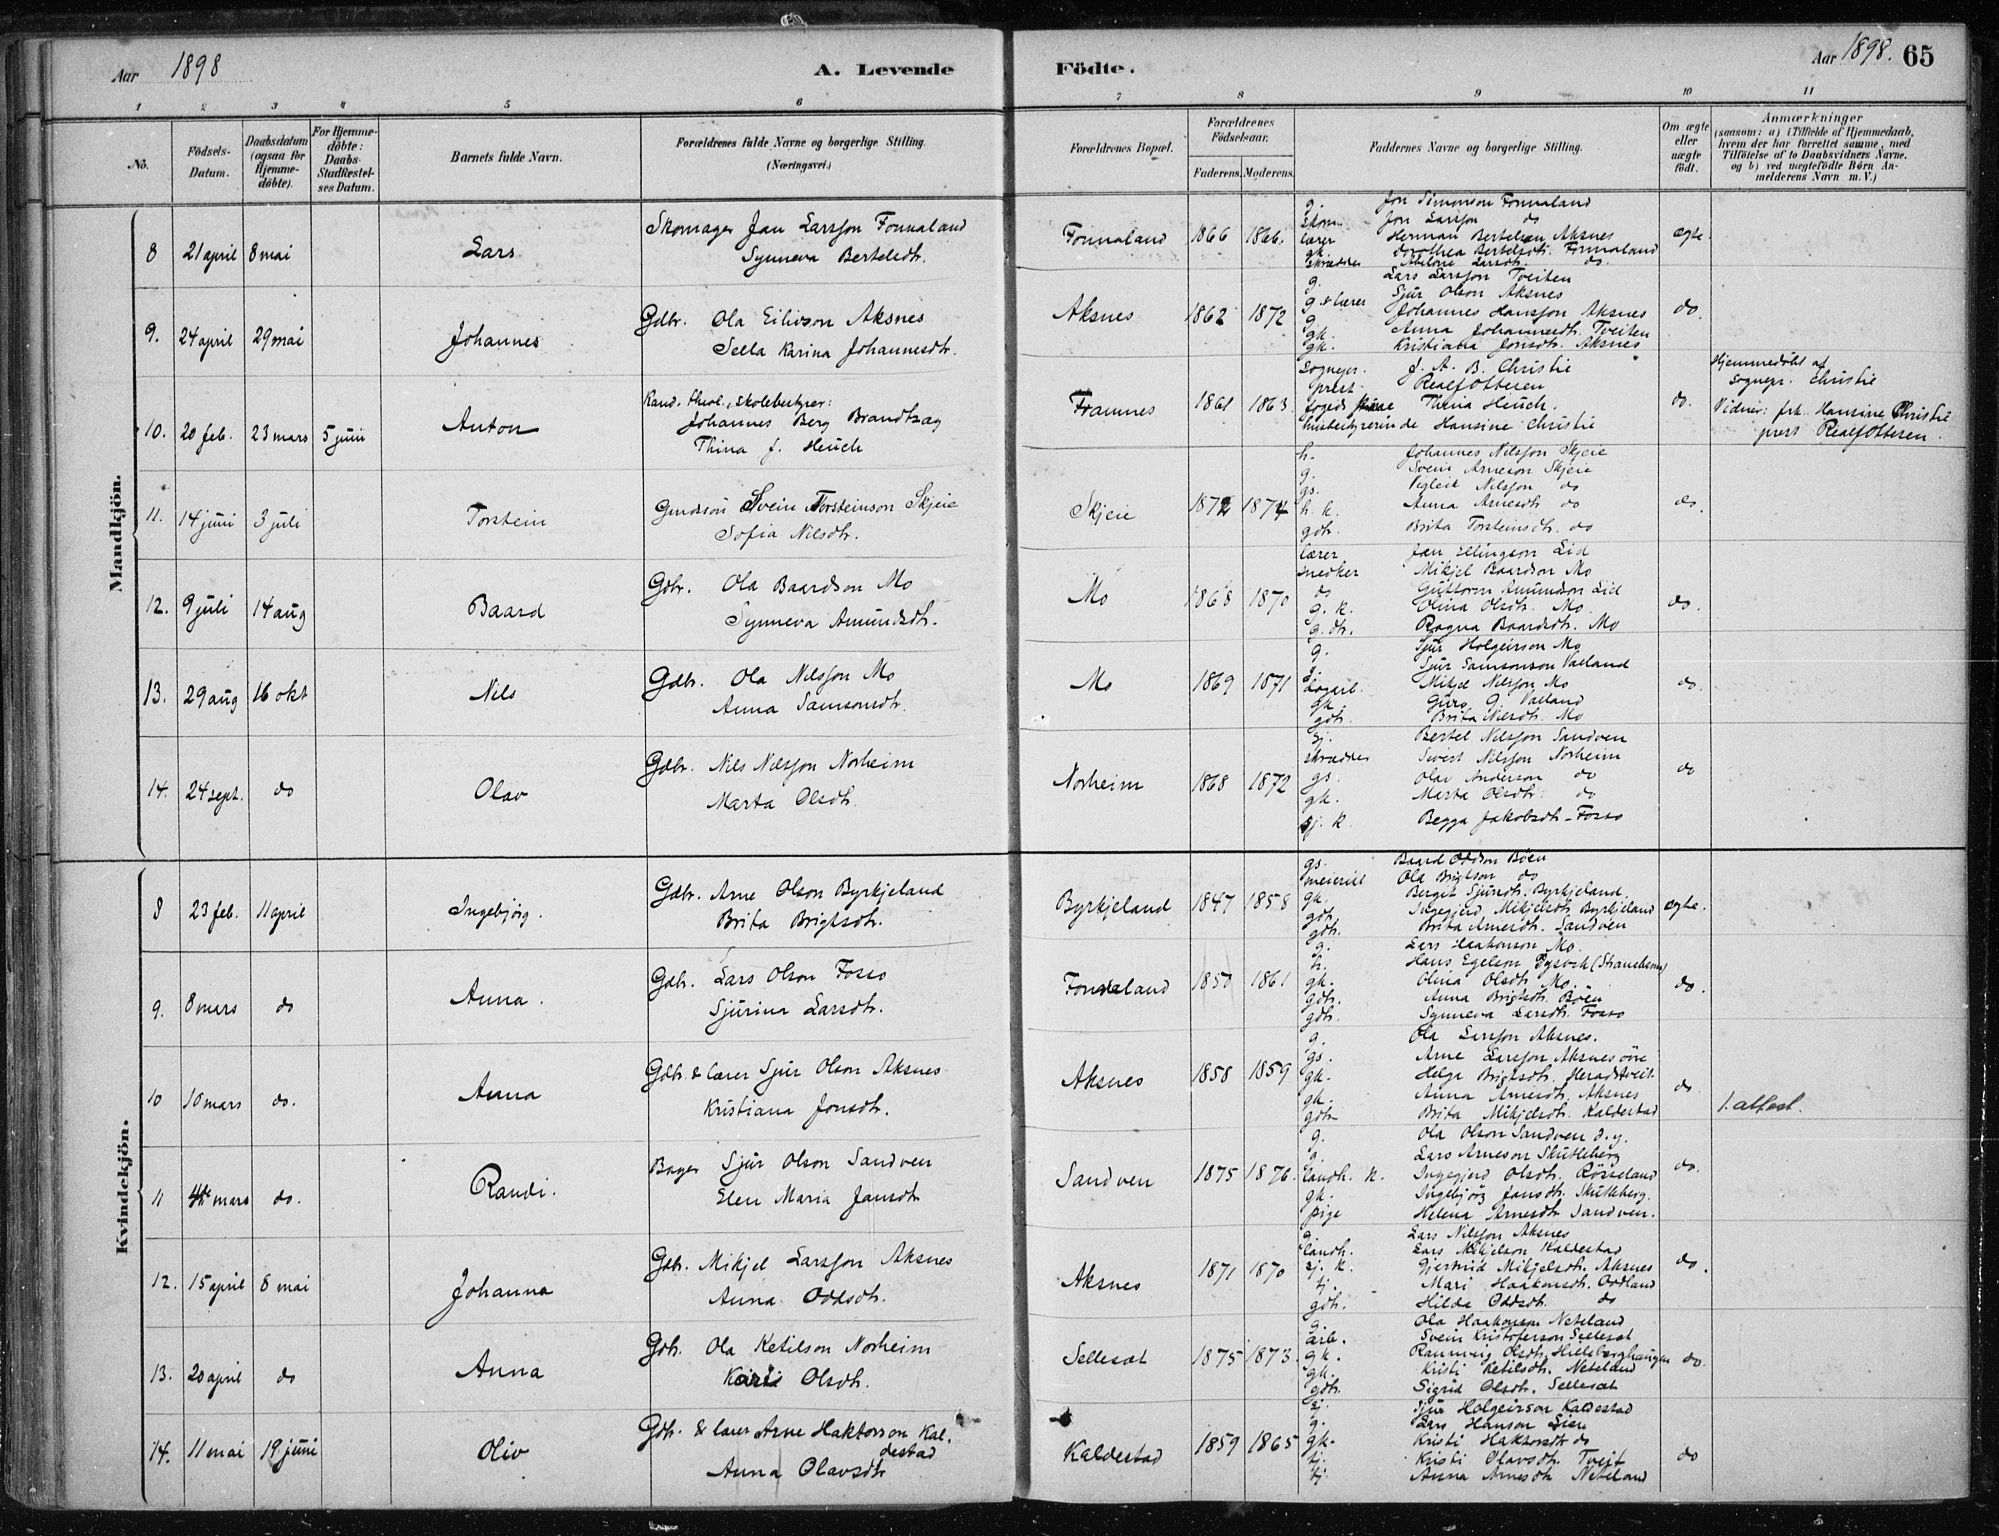 Aar 1898
A. Levende
Födte.
Aar 1898. 65
1 2 3 4 5 6 7 8 9 10 11
No.
Födsels-Datum.
Daabsdatum (ogsaa for Hjemme-döbte).
For Hjemme-döbte: Daabs-Stadfæstel-ses Datum.
Barnets fulde Navn.
Forældrenes fulde Navne og borgerlige Stilling.
(Næringsvei.)
Forældrenes Bopæl.
Forældrenes Födselsaar.
Faderens. Moderens.
Faddernes Navne og borgerlige Stilling.
Om ægte eller uægte födt.
Anmærkninger
(saasom: a) i Tilfælde af Hjemmedaab, hvem der har forrettet samme, med Tilföielse af to Daabsvidners Navne, og b) ved uægtefödte Börn An-melderens Navn m. V.)
Mandkjön.
8 21 april 8 mai Lars
Skomager Jan Larsson Fonnaland
Synneva Bertelsdtr.
Fonnaland 1866 1866.
g. Jon Simonson Fonnaland
skom. Jon Larsson do
lærer Herman Bertelsen Aksnes
gk. Dorothea Bertelsdt. Fonnaland
skrædder Larsdt. do.
ægte.
9. 24 april 29 mai Johannes
Gdbr. Ola Eilivson Aksnes
Sella Karina Johannesdtr.
Aksnes 1862 1872
g. Lars Larsson Tveiten
g & lærer Sjur Olson Aksnes
g Johannes Hansson Aksnes
gk. Anna Johannesdt. Tveiten
gk. Kristiana Jonsdt. Aksnes
do.
10. 20 feb. 23 mars 5 juni Anton
Kand. theol., skolebestyrer:
Johannes Berg Brandtzæg
Thina J. Heuch
Framnes 1861 1863.
sognepr. J. A. B. Christie
prest Realf Ottesen
Thina Heuch.
husbestyrerinde Hansine Christie
do.
Hjemmedöbt af
sognepr. Christie
Vidner: frk. Hansine Christie
prest Realf Ottesen.
11. 14 juni 3 juli Torstein
Gmdssön Svein Torsteinson Skjeie
Sofia Nilsdtr.
Skjeie 1872 1874
h. Johannes Nilsson Skjeie
g. Svein Arneson Skjeie
gs. Vigleik Nilsson do
h. k. Anna Arnesdt do
gdtr. Brita Torsteinsdt. do
do.
12. 9 juli 14 aug Baard
Gdbr. Ola Baardson Mo
Synneva Amundsdtr.
Mo 1868 1870
lærer Jan Ellingson Lid
snedker Mikjel Baardson Mo
do Guttorm Amundson Lid
g. k. Olina Olsdt. Mo
g. dtr. Ragna Baardsdt. Mo
do.
13. 29 aug 16 okt Nils
Gdbr. Ola Nilsson Mo
Anna Samsonsdtr.
Mo 1869 1871
g. Sjur Holgeirson Mo
Sjur Samsonson Vaeland
dagarb. Mikjel Nilsson Mo
gk. Guro G. Vaeland
gdtr. Brita Nilsdt. Mo
do.
14. 24 sept. do Olav
Gdbr. Nils Nilsson Norheim
Marta Olsdtr.
Norheim 1868 1872
sj. Bertel Nilsson Sandven
skrædder Sivert Nilsson Norheim
gs. Olav Anderson do
gk. Marta Olsdtr do
sj. k. Begga Jakobsdt. Fosso
do
Kvindekjön.
8 23 feb. 11 april Ingebjörg.
Gdbr. Arne Olson Byrkjeland
Brita Brigtsdtr.
Byrkjeland 1847 1858
gs. Baard Oddson Böen
meierist Ola Brigtson do
gk. Bergit Sjursdt. Byrkjeland
gdtr. Ingegjerd Mikjelsdt. Byrkjeland
gdtr. Brita Arnesdt. Sandven
ægte.
9. 8 mars do Anna.
Gdbr. Lars Olson Fosso
Sjurina Larsdtr.
Fonnaland 1850 1861
g. Lars Haakonson Mo.
h. Hans Egelson
gk. Olina Olsdt. Mo.
gdtr. Anna Brigtsdt. Böen
gdtr. Synneva Larsdt. Fosso
do.
10 10 mars do. Anna
Gdbr. & lærer Sjur Olson Aksnes
Kristiana Jonsdtr.
Aksnes 1858 1859
g. Ola Larsson Aksnes.
gs. Arne Larsson Aksnes öre
gk. Helga Brigtsdt. Heradstveit
gk. Anna Arnesdt. Aksnes
gdtr Brita Mikjelsdt. Kaldestad
do.
1. attest.
11 4de mars do. Randi.
Bager Sjur Olson Sandven
Elen Maria Jansdtr
Sandven 1875 1876.
g. Ola Olson Sandven d.y.
g. Lars Arneson Skutleberg
landh. k. Ingegjerd Olsdt. Rösseland
gk. Ingebjörg Jansdt. Skutleberg.
pige Helena Arnesdt Sandven.
do.
12. 15 april 8 mai Johanna
Gdbr. Mikjel Larsson Aksnes
Anna Oddsdtr.
Aksnes 1871 1870
g. Lars Nilsson Aksnes
landh. Lars Mikjelson Kaldestad
sj. k. Gjertrud Mikjelsdt. Aksnes
tj. Mari Haakonsdt. Oddland
gdtr. Hilda Oddsdt. do
do.
13. 20 april do Anna
Gdbr. Ola Ketilson Norheim
Kari Olsdtr.
Selleset 1875 1873.
g. Ola Haakonson Neteland
arb. Svein Kristoferson Selleset
gk. Rannveig Olsdt.
gk. Kristi Ketilsdt. Neteland
gdtr. Sigrid Olsdt. Selleset
do.
14. 11 mai 19 juni Oliv
Gdbr. & lærer Arne Haktorson Kal-
destad
Anna Olavsdtr
Kaldestad 1859 1865
sj. Sjur Holgeirson Kaldestad
g. Lars Hanson Lien
gk. Kristi Haktorsdt do
tj. Kristi Olavsdt. Tveit
tj. Anna Arnesdt Neteland
do